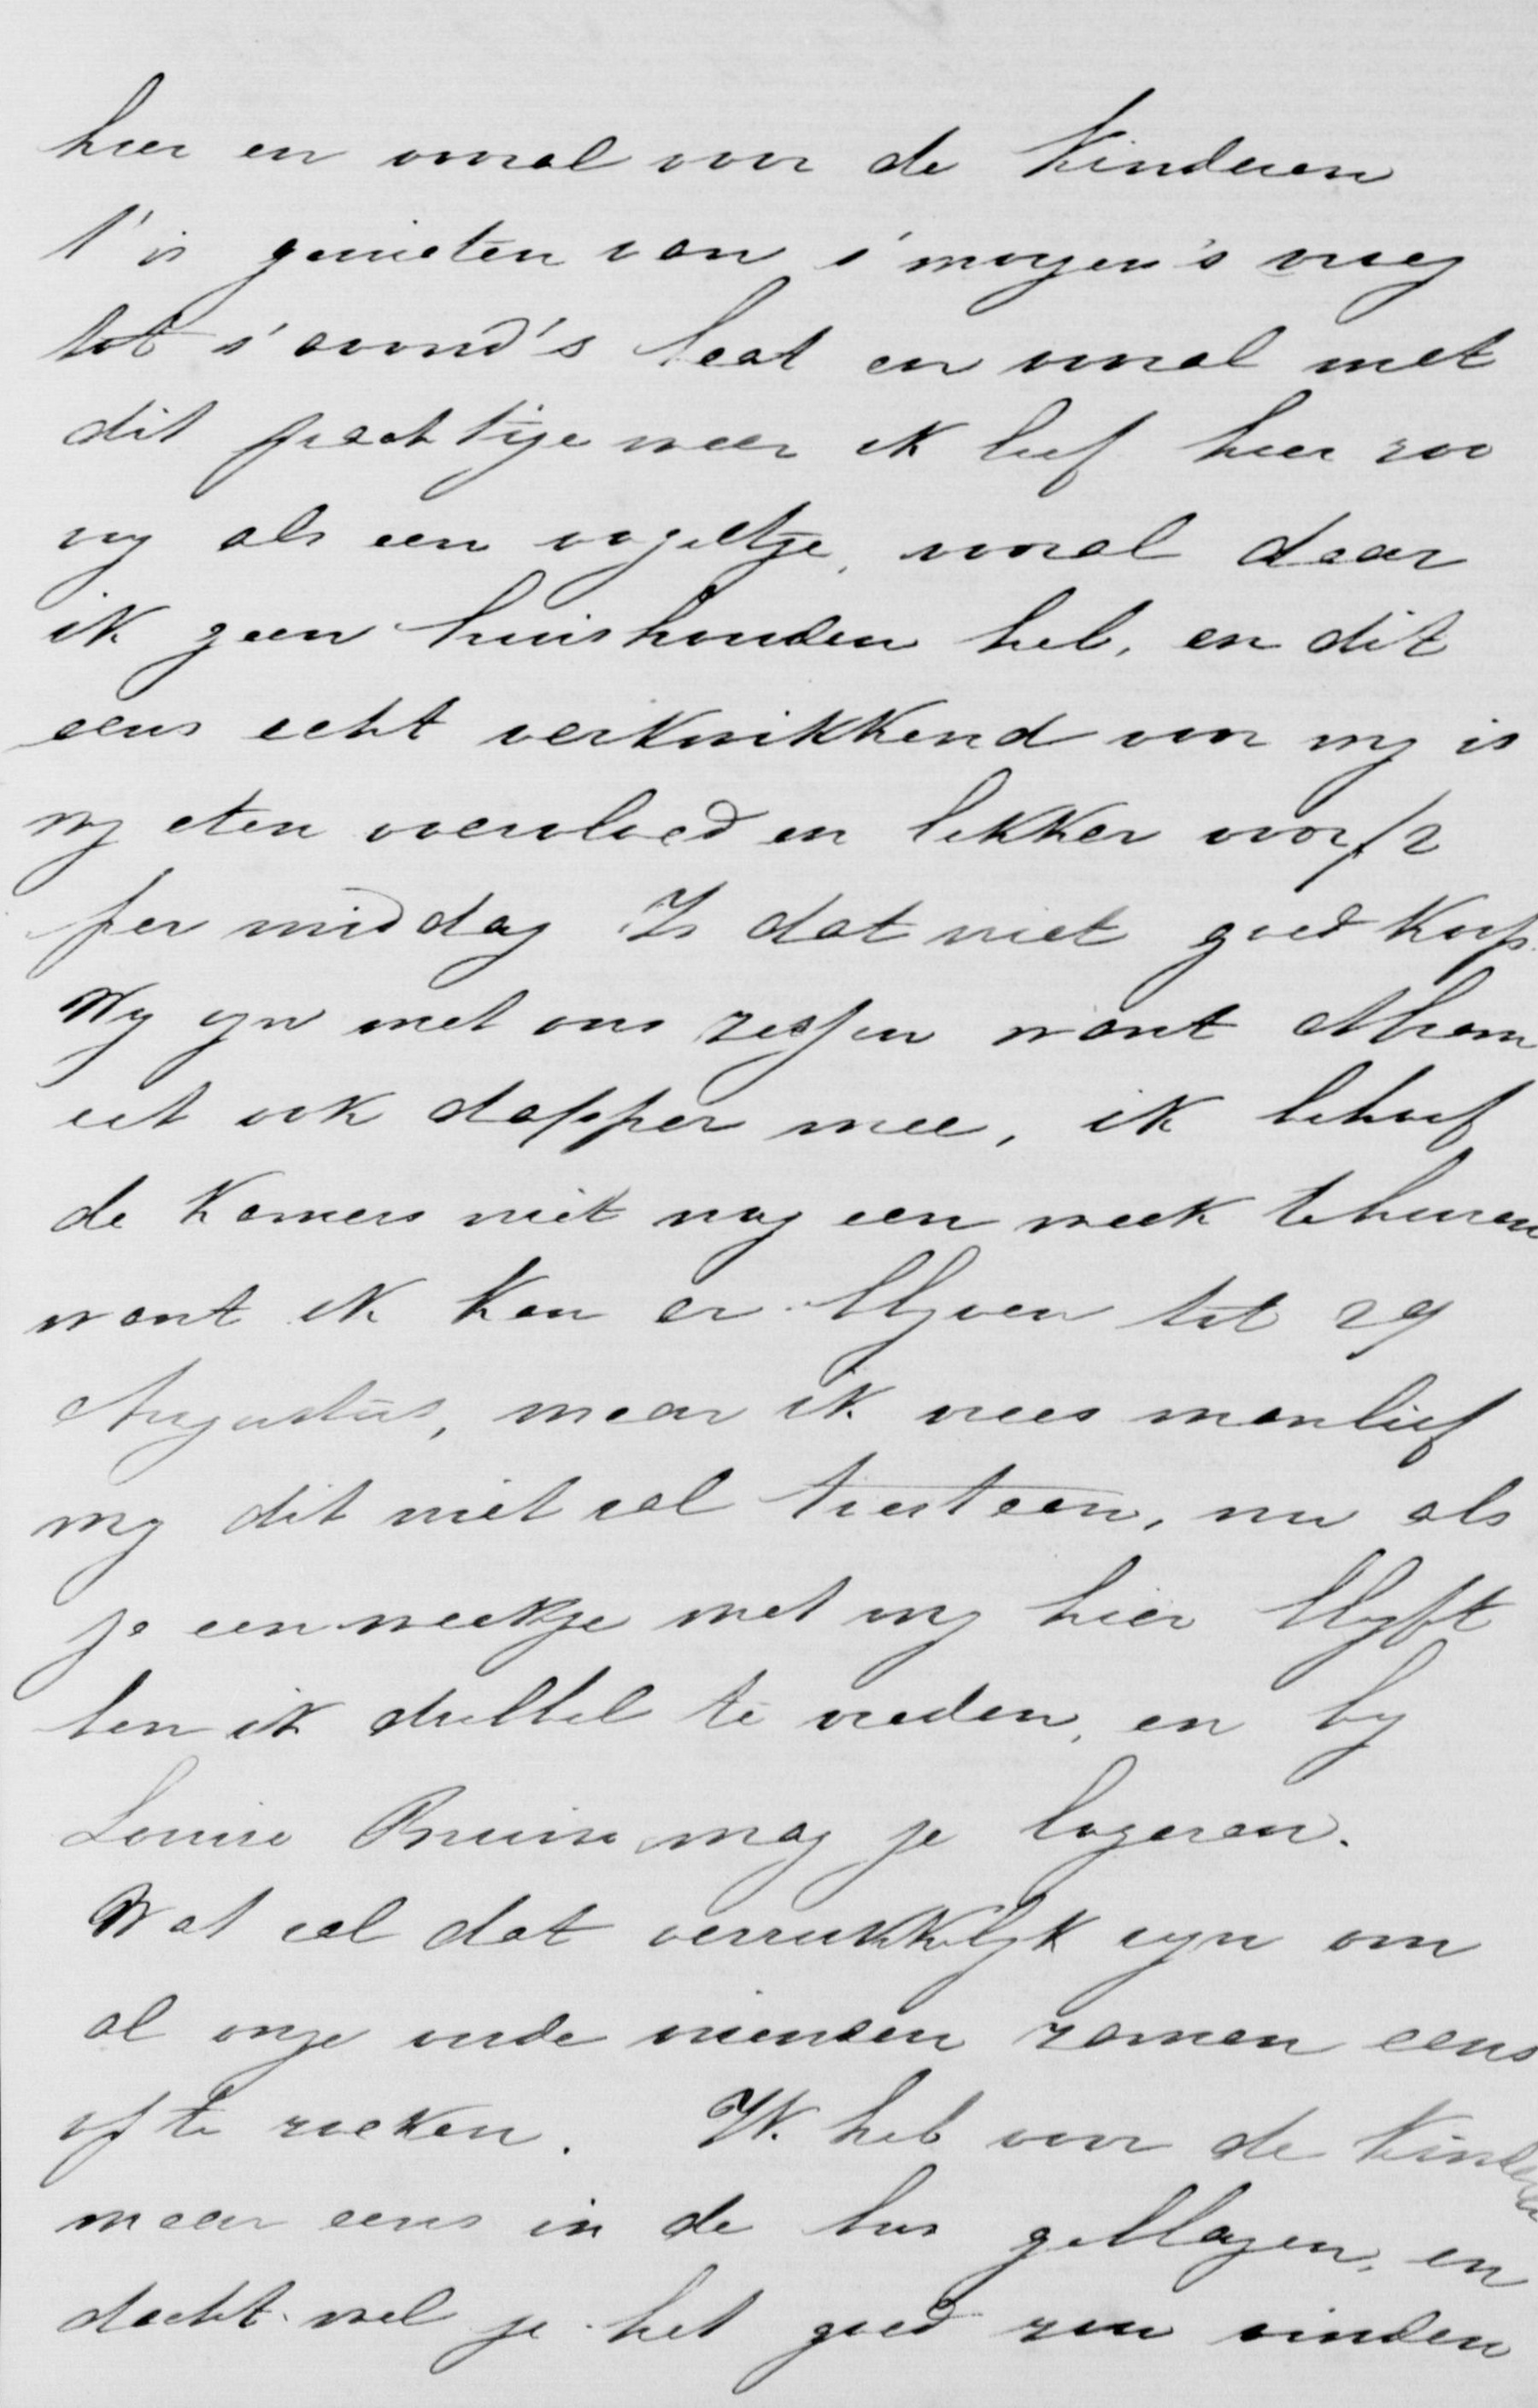 hier en vooral voor de Kinderen
t'is genieten van s'morgen's vroeg
tot s'avond's laat en vooral met
dit prachtige weer ik leef hier zoo
vrij als een vogeltje, vooral daar
ik geen huishouden heb, en dit
eens echt verkwikkend voor mij is
wij eten overvloed en lekker voor f2
per middag Is dat niet goed koop.
Wij zijn met ons zessen want Abram
eet ook dapper mee, ik behoef
de Kamers niet nog een week te huren
want ik kan er blijven tot 29
Augustus, maar ik vrees manlief
mij dit niet zal toestaan, nu als
je een weekje met mij hier blijft
ben ik dubbel te vreden, en bij
Louise Bruins mag je logeren.
Wat zal dat verrukkelijk zijn om
al onze oude vrienden zamen eens
op te zoeken. Ik heb voor de Kinderen
maar eens in de bus geblazen, en
dacht wel je het goed zou vinden